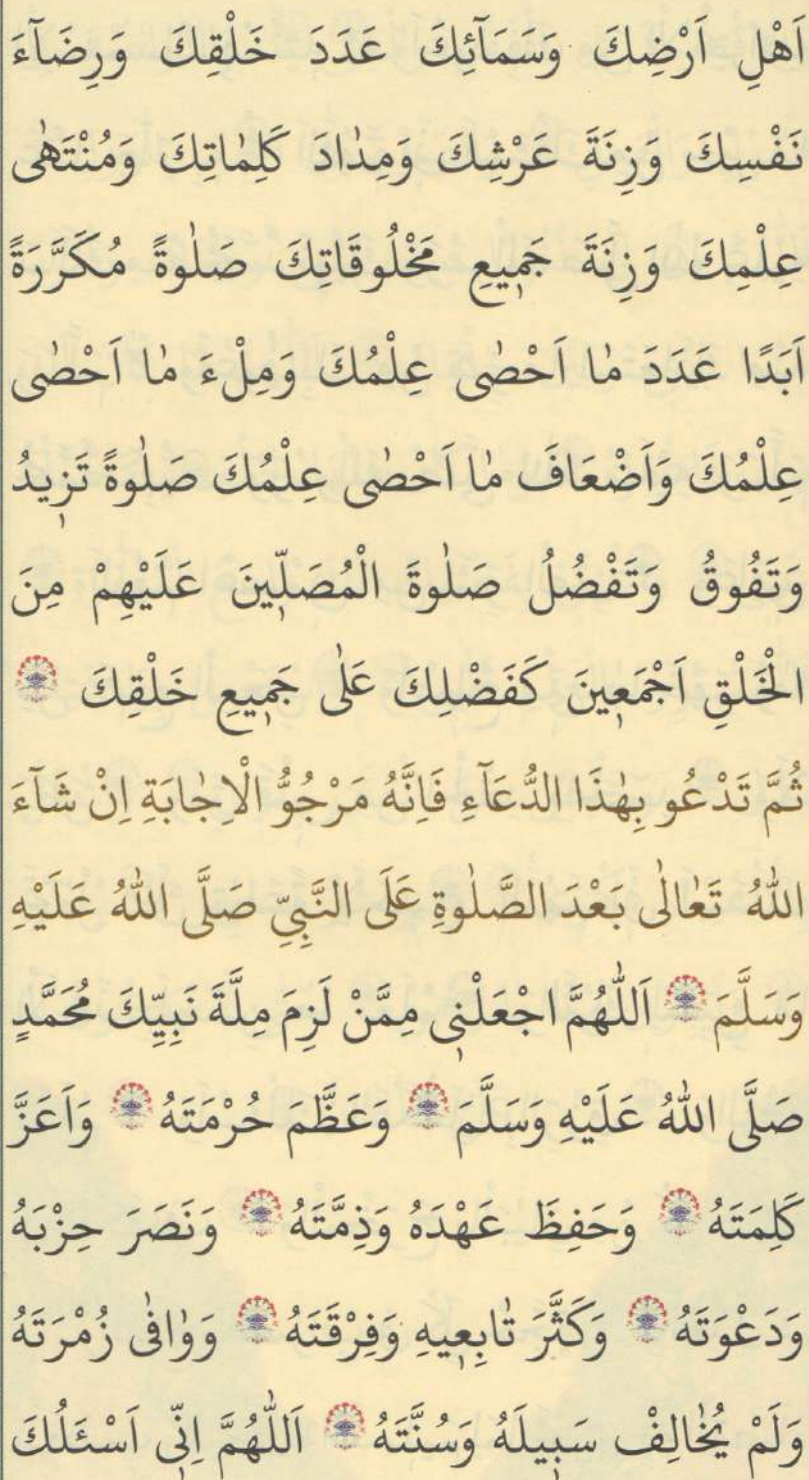 اَهْلِ اَرْضِكَ وَسَمَآئِكَ عَدَدَ خَلْقِكَ وَرِضَآءَ
نَفْسِكَ وَزِنَةَ عَرْشِكَ وَمِدٰادَ كَلِمٰاتِكَ وَمُنْتَهٰى
عِلْمِكَ وَزِنَةَ جَمٖيعِ مَخْلُوقَاتِكَ صَلٰوةً مُكَرَّرَةً
اَبَدًا عَدَدَ مٰا اَحْصٰى عِلْمُكَ وَمِلْءَ مٰا اَحْصٰى
عِلْمُكَ وَاَضْعَافَ مٰا اَحْصٰى عِلْمُكَ صَلٰوةً تَزٖيدُ
وَتَفُوقُ وَتَفْضُلُ صَلٰوةَ الْمُصَلّٖينَ عَلَيْهِمْ مِنَ
الْخَلْقِ اَجْمَعٖينَ كَفَضْلِكَ عَلٰى جَمٖيعِ خَلْقِكَ
ثُمَّ تَدْعُو بِهٰذَا الدُّعَآءِ فَاِنَّهُ مَرْجُوُّ الْاِجٰابَةِ اِنْ شَآءَ
اللّٰهُ تَعٰالٰى بَعْدَ الصَّلٰوةِ عَلَى النَّبِيِّ صَلَّى اللّٰهُ عَلَيْهِ
وَسَلَّمَ اَللّٰهُمَّ اجْعَلْنٖى مِمَّنْ لَزِمَ مِلَّةَ نَبِيِّكَ مُحَمَّدٍ
صَلَّى اللّٰهُ عَلَيْهِ وَسَلَّمَ وَعَظَّمَ حُرْمَتَهُ وَاَعَزَّ
كَلِمَتَهُ وَحَفِظَ عَهْدَهُ وَذِمَّتَهُ وَنَصَرَ حِزْبَهُ
وَدَعْوَتَهُ وَكَثَّرَ تٰابِعٖيهِ وَفِرْقَتَهُ وَوٰافٰى زُمْرَتَهُ
وَلَمْ يُخٰالِفْ سَبٖيلَهُ وَسُنَّتَهُ اَللّٰهُمَّ اِنّٖى اَسْئَلُكَ